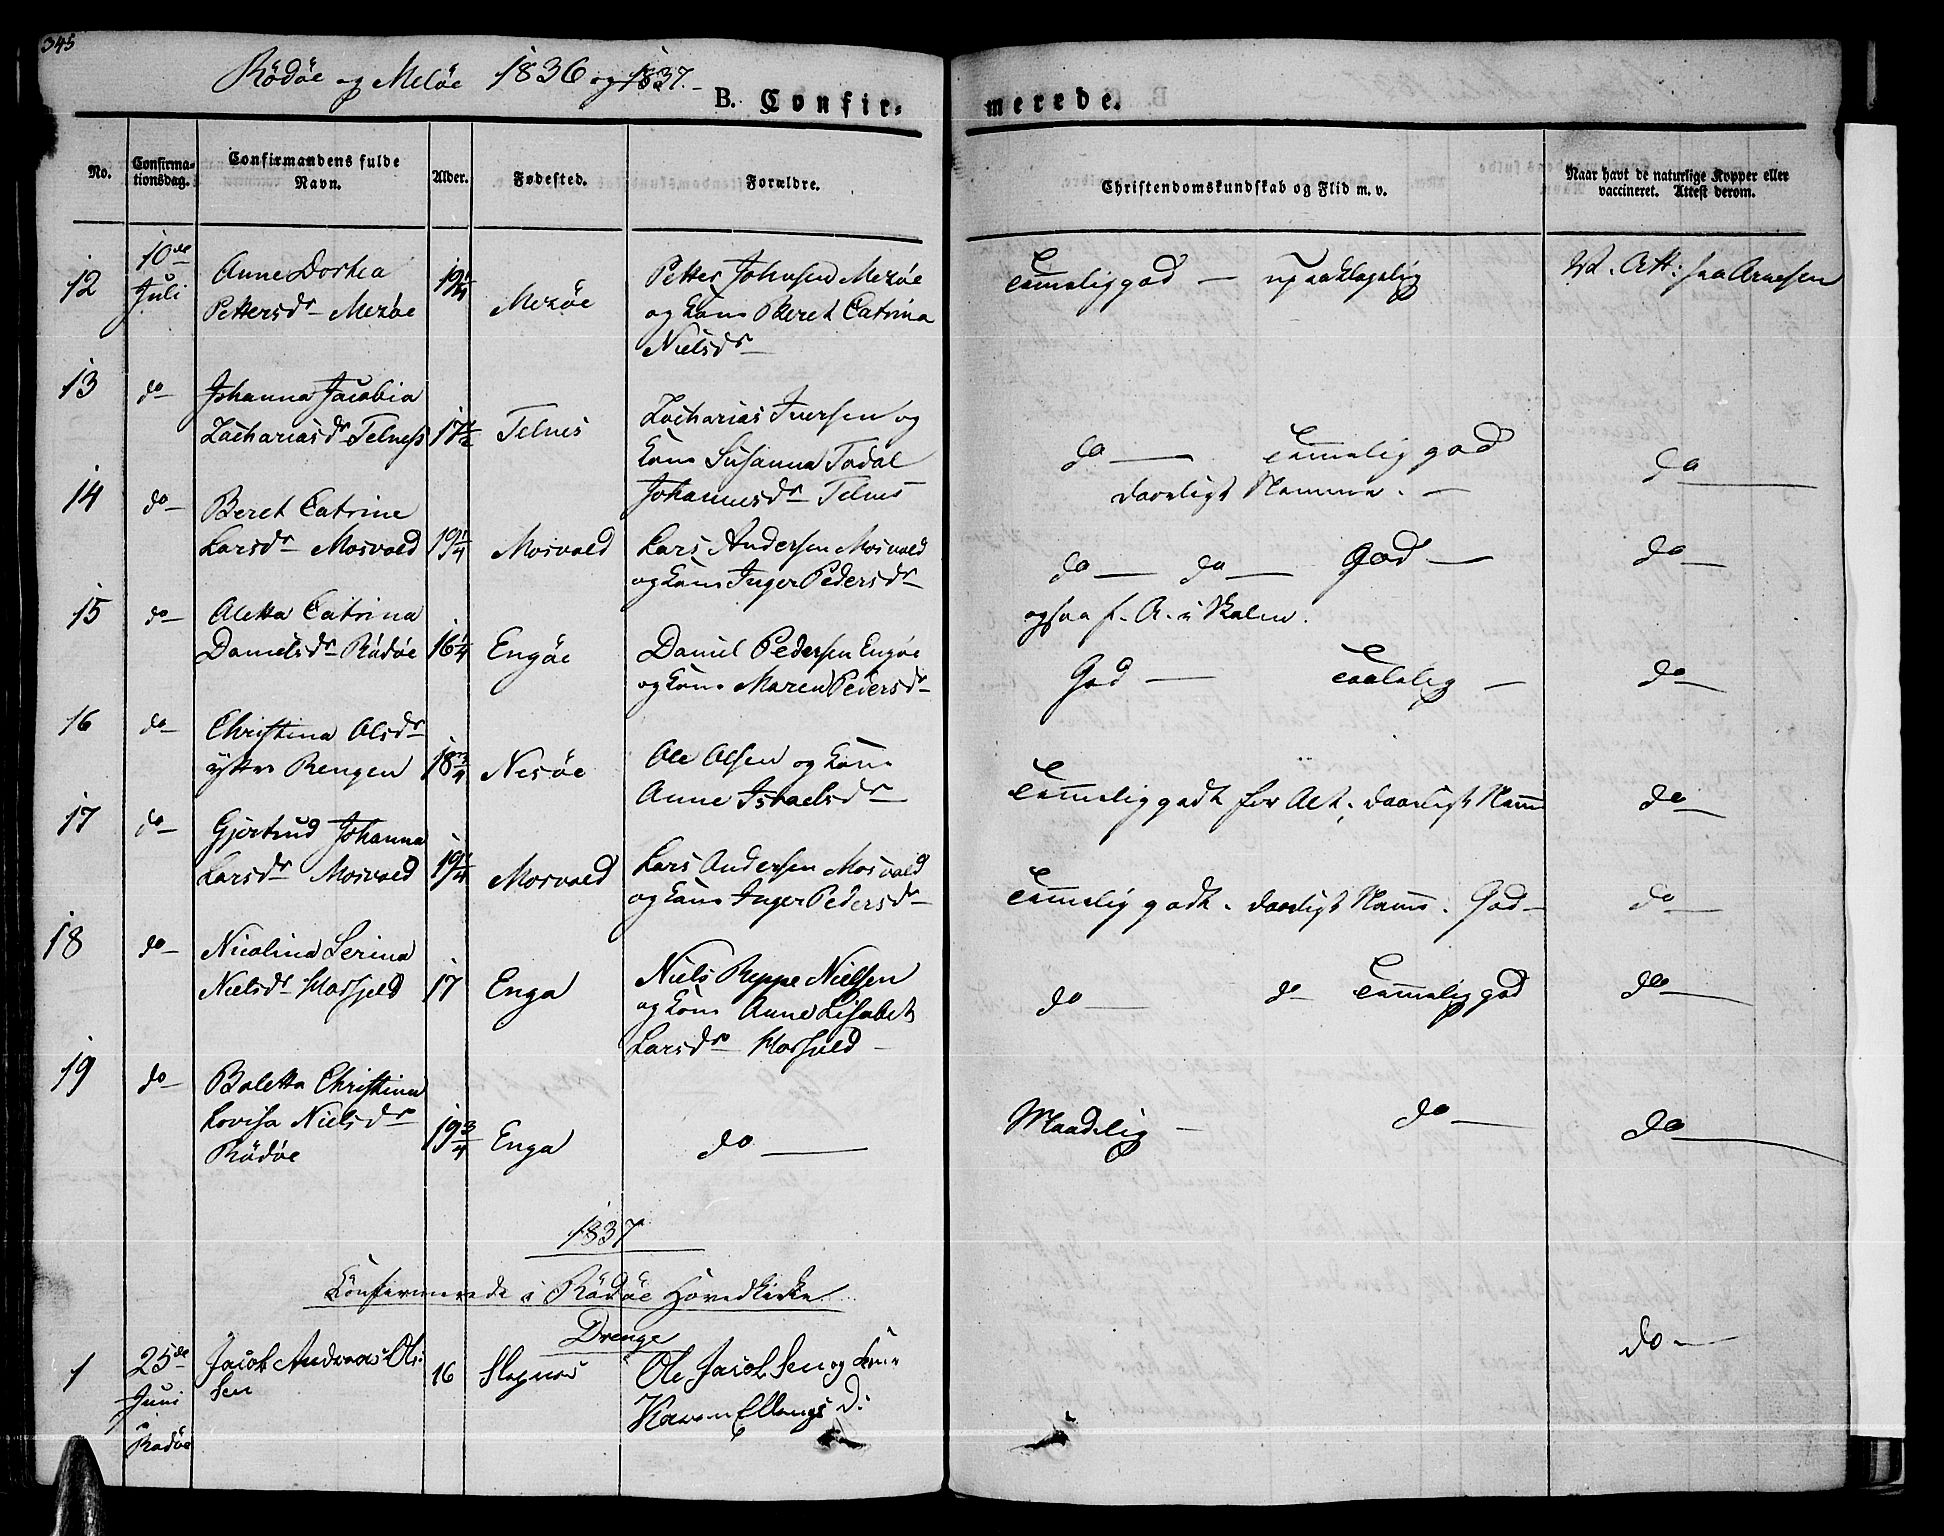 345
Rödöe og Melöe 1836 og 1837.
B. Confir- merede.
No.
Confirma-
tionsdag.
Confirmandens fulde
Navn.
Alder.
Fødested.
Forældre.
Christendomskundskab og Flid m. v.
Naar havt de naturlige Kopper eller
vaccineret. Attest derom.
12
10de
Juli
Anne Dorthea
Pettersdr Mezöe
19 1/4
Mezöe
Petter Johnsen Mezöe
og Kone Beret Catrina
Nielsdr
Temmelig god — upaaklagelig
V. Att: fra Arnesen
13
do
Johanna Jacobia
Zachariasdr Telness
17 1/2
Telnes
Zacharias Iversen og
Kone Susanna Todal
Johannesdr Telnes
do — Temmelig god
daarligt Nemme. —
do
14
do
Beret Catrine
Larsdr Mosvold
19 1/4
Mosvold
Lars Andersen Mosvold
og Kone Inger Pedersdr
do — do — God —
ogsaa f. A. i Skolen.
do
15
do
Aletta Catrina
Danielsdr Rödöe
16 1/4
Engöe
Daniel Pedersen Engöe
og Kone Maren Pedersdr
God — Taalelig —
do
16
do
Christina Olsdr
yttre Rengen
18 3/4
Nesöe
Ole Olsen og Kone
Anne Israelsdr
Temmelig godt for Alt; daarligt Nemme
do
17
do
Gjertrud Johanna
Larsdr Mosvold
19 1/4
Mosvold
Lars Andersen Mosvold
og Kone Inger Pedersdr
Temmelig godt. daarligt Nemme. God —
do
18
do
Nicolina Serina
Nielsdr Vasfjeld
17
Enga
Niels Beppe Nielsen
og Kone Anne Lisabet
Larsdr
do — do Temmelig god
do
19
do
Baletta Christina
Lovisa Nielsdr
Rödöe
19 3/4
Enga
do
Maadelig — do
do
1837
Confirmerede i Rödöe Hovedkirke
Drenge
1
25de
Juni
Rödöe
Jacob Andreas Ol-
sen
16
Selsnæs
Ole Jacobsen og Kone
Karen Ellingsd:
do